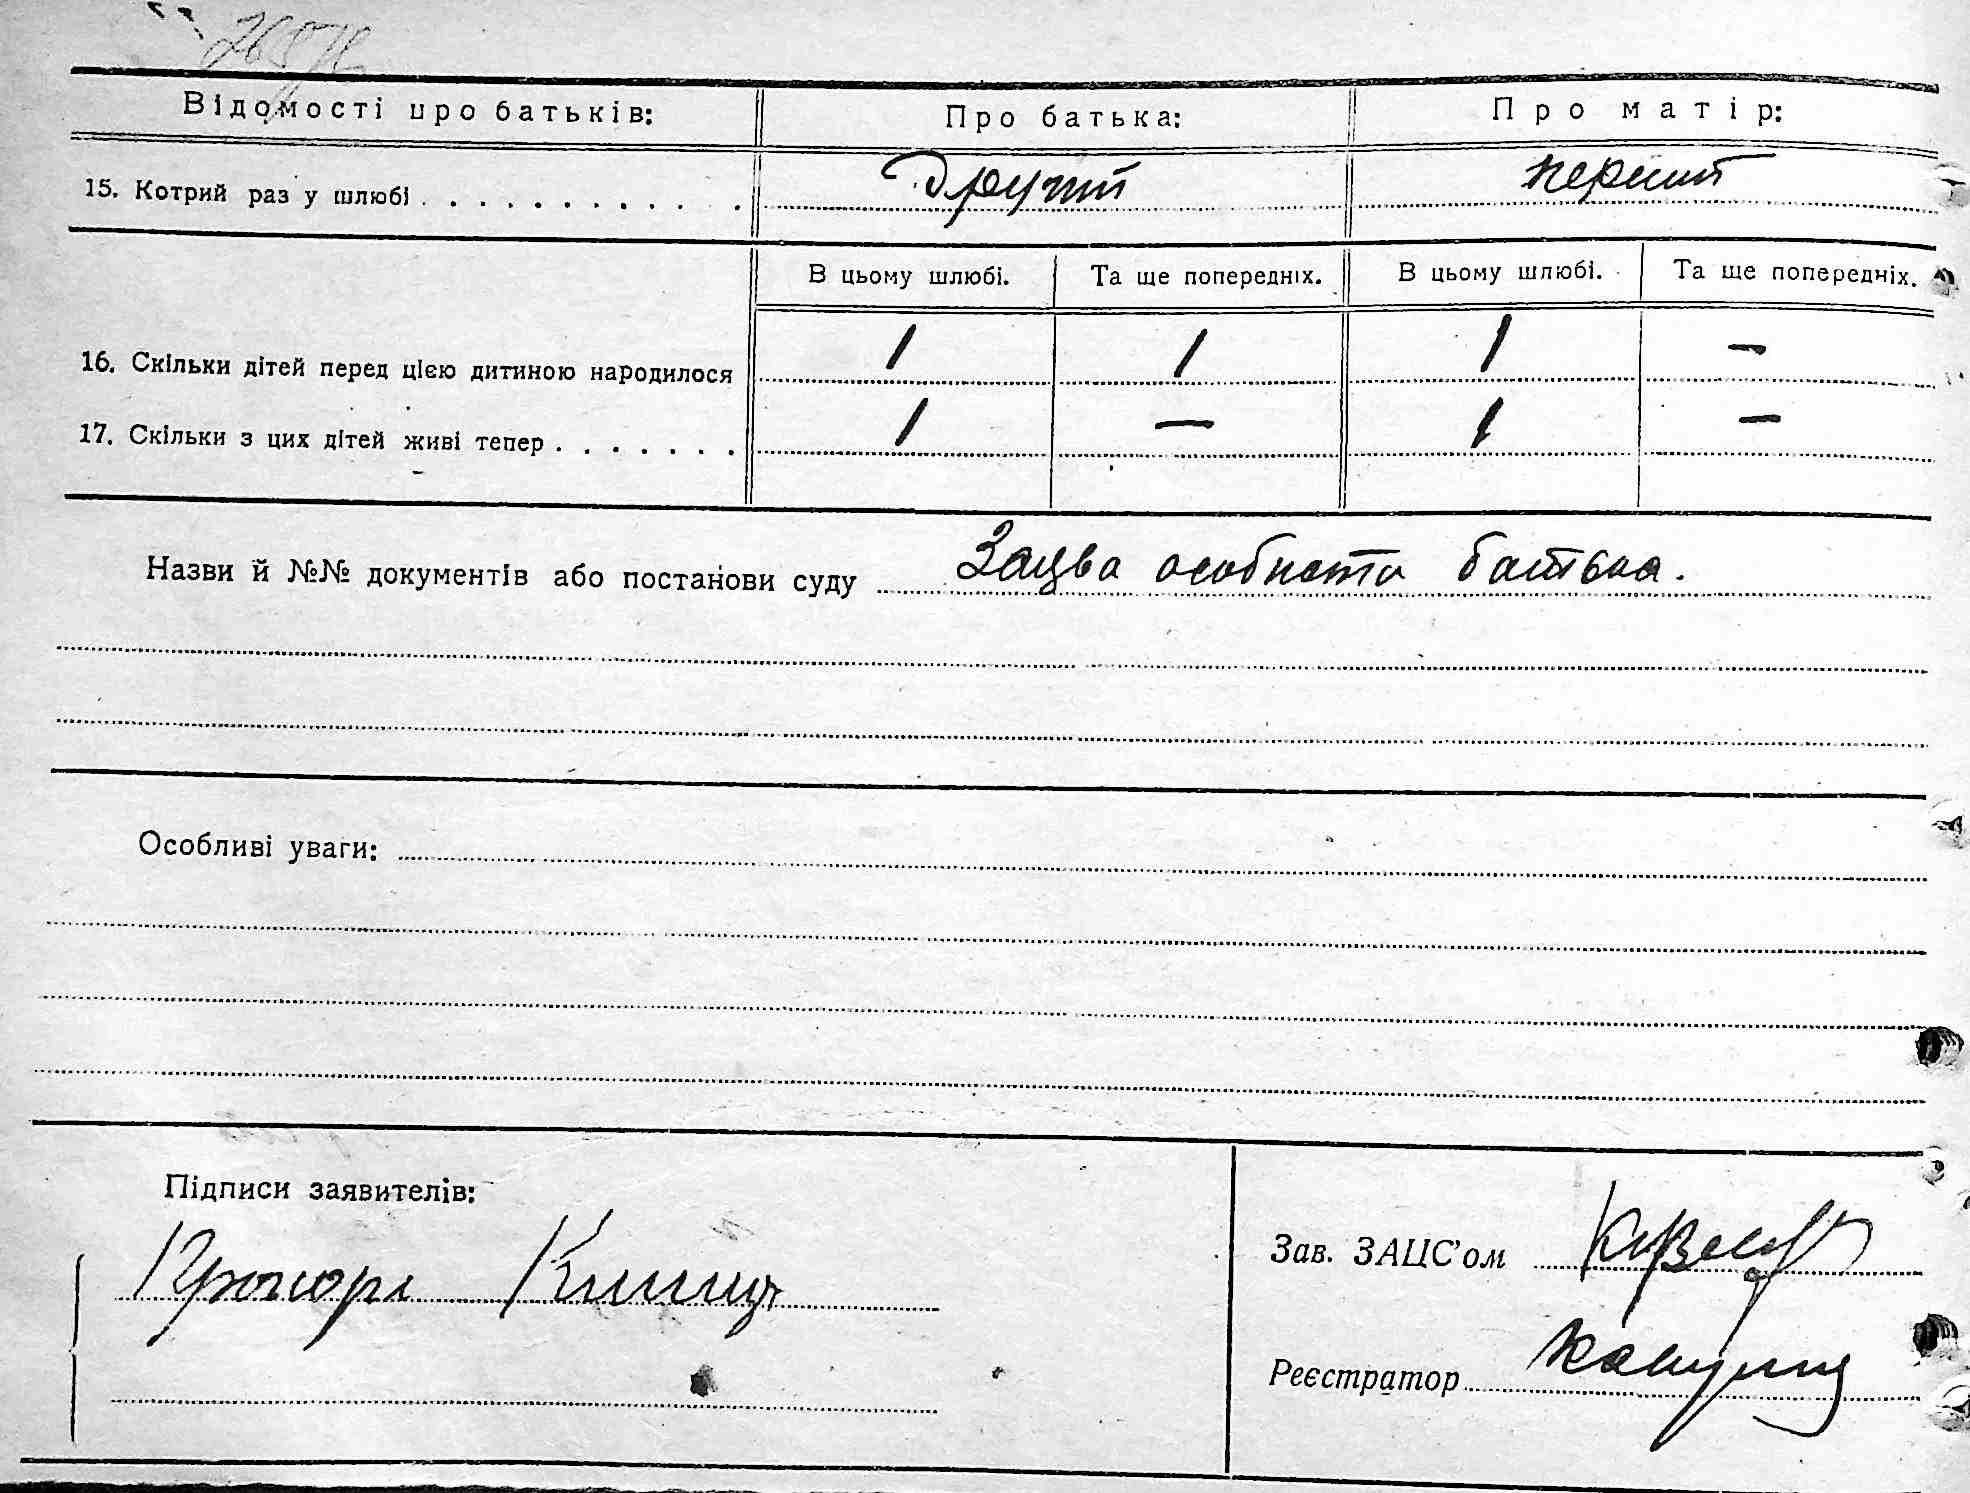 Відомості про батьків: Про батька: Про матір:
15. Котрий раз у шлюбі . . . . . . . . . . . . Другий перший
В цьому шлюбі. Та ще попередніх. В цьому шлюбі. Та ще попередніх.
16. Скільки дітей перед цією дитиною народилося 1 1 1 —
17. Скільки з цих дітей живі тепер . . . . . . . 1 — 1 —
Назви й №№ документів або постанови суду Заява особиста батька.
Особливі уваги:
Підписи заявителів:
Зав. ЗАЦС'ом
Реєстратор